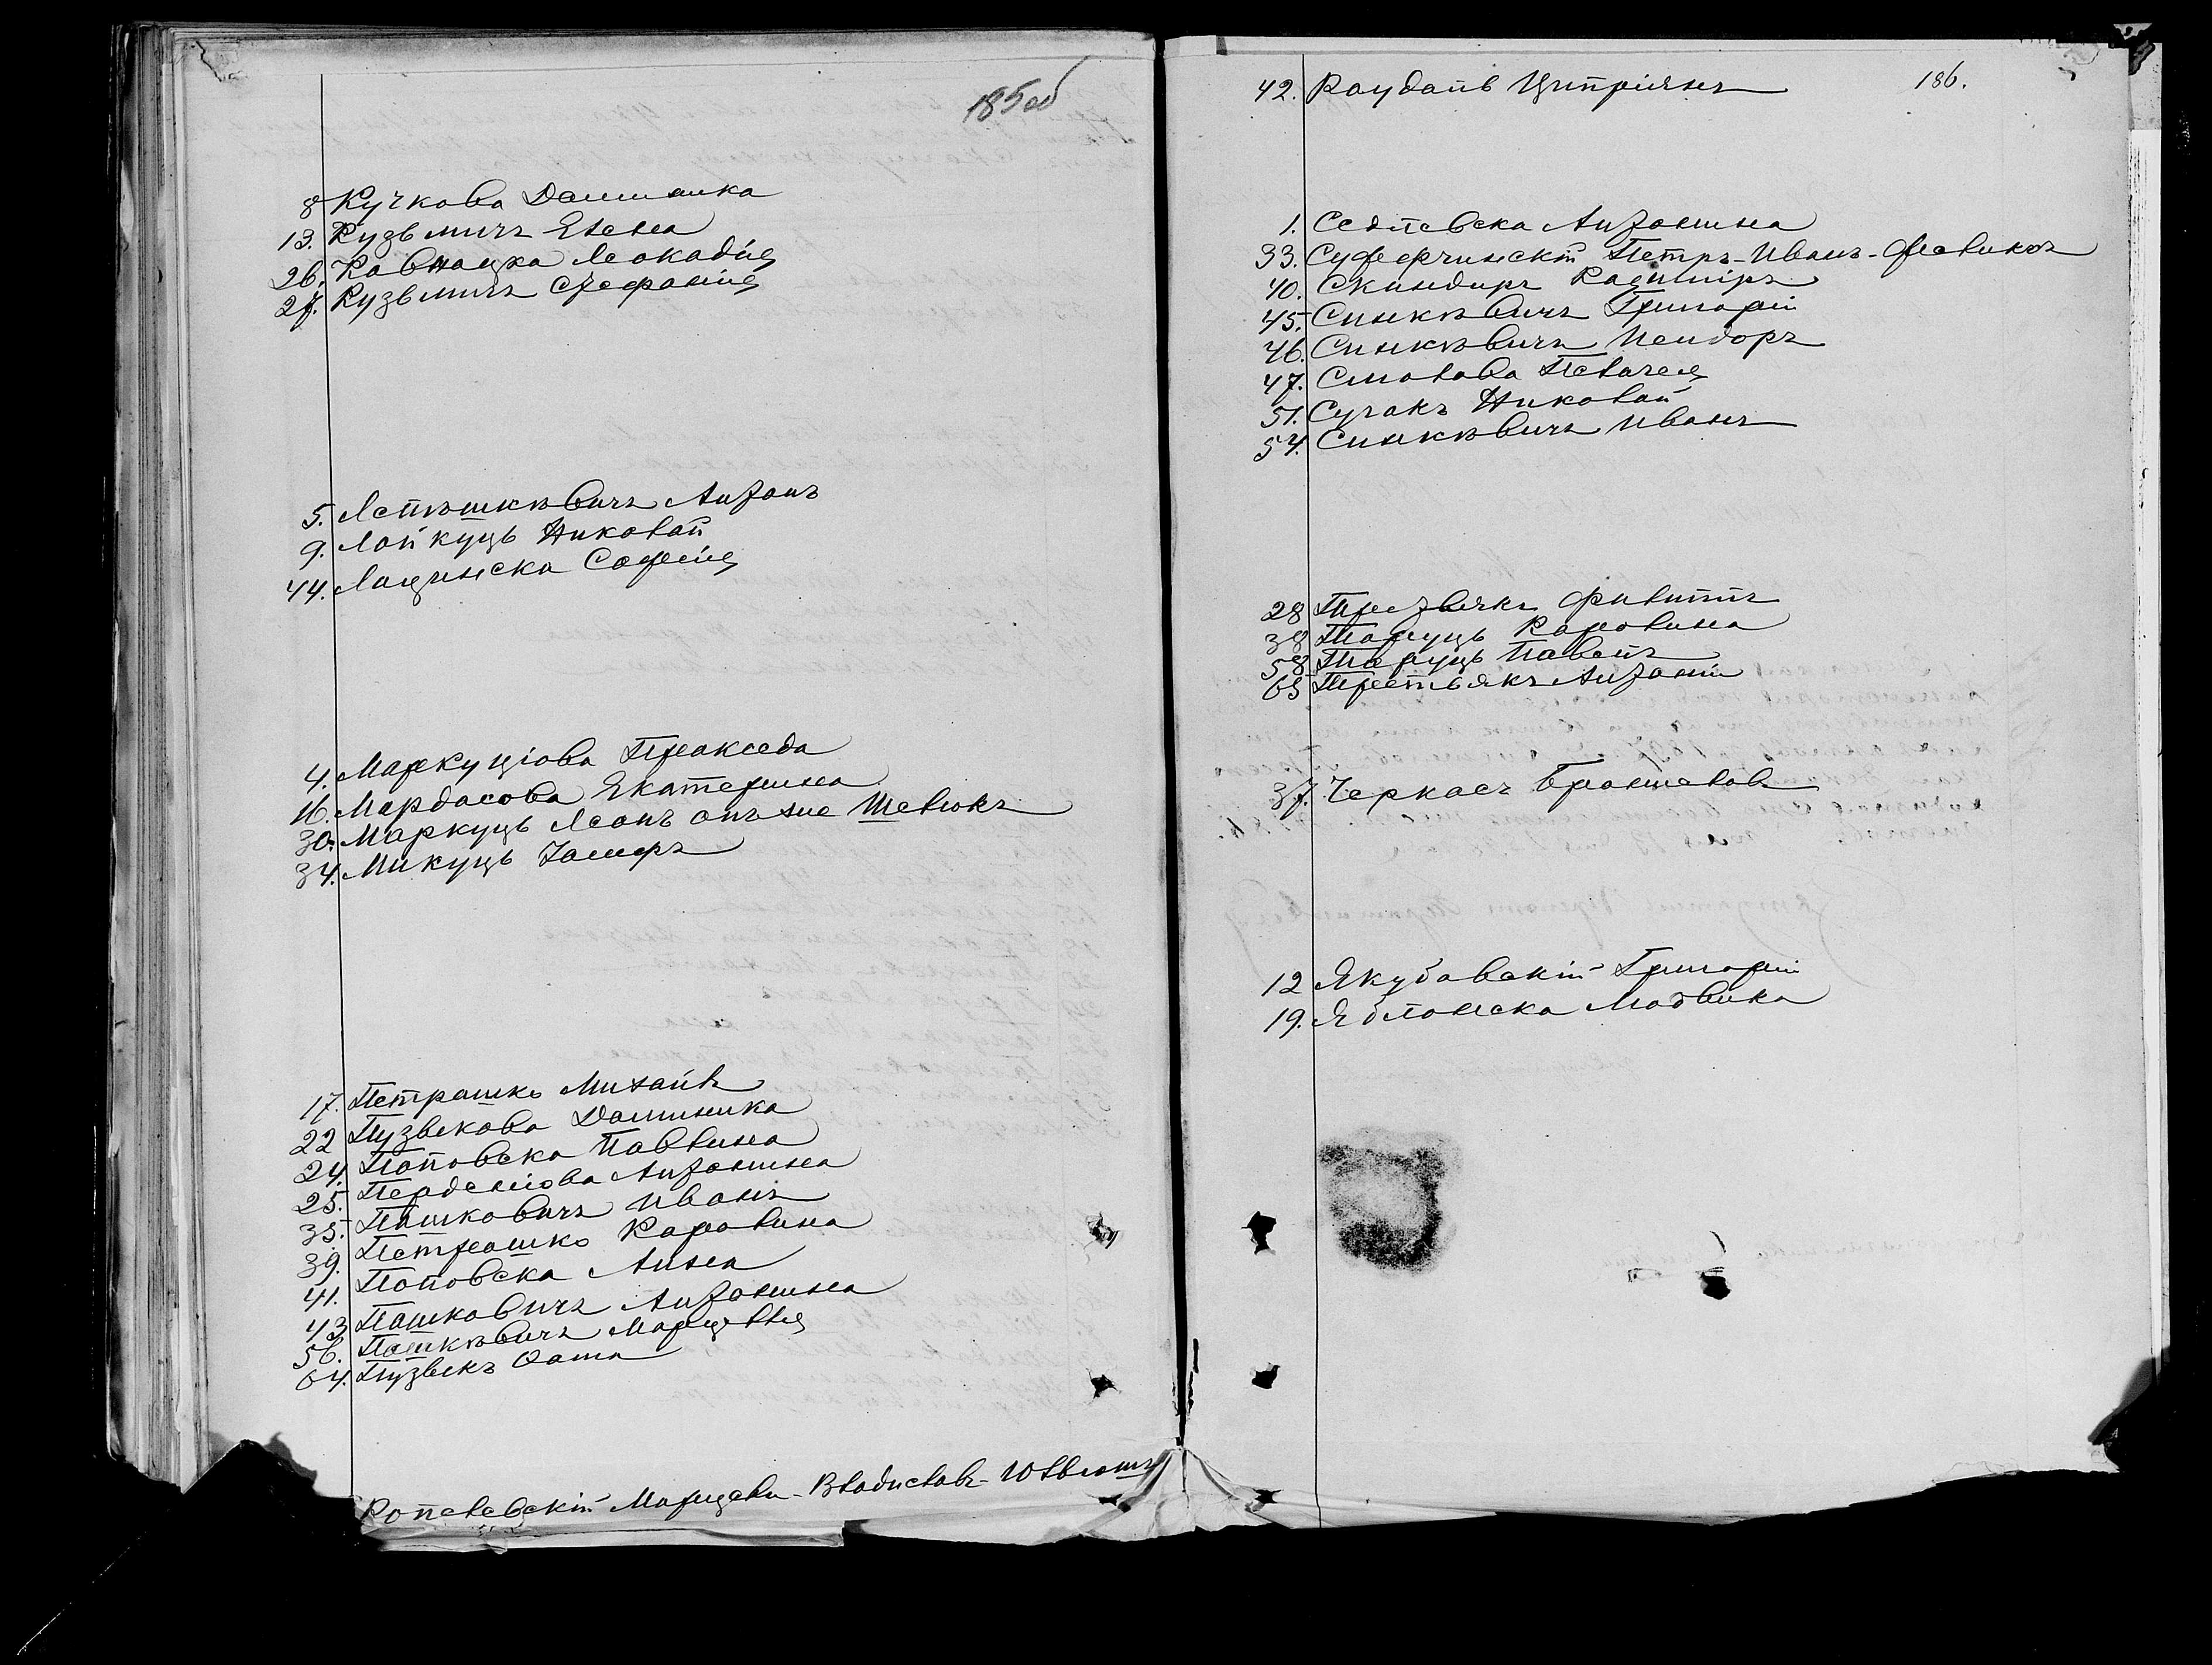 185 об
8 Кучкова Доминика
13. Кузьмичъ Елена
26. Ковнацка Леокадія
27. Кузьмичъ Стефанія
5. Летяшкѣвичъ Антонъ
9. Лойкуць Николай
44. Лащинска Софія
4. Маркуціова Пракседа
16. Мардасова Екатерина
30. Маркуць Леонъ онъ же Шевлюкъ
34. Микуць Томеръ
17. Петрашко Михаилъ
22 Пузыкова Доминика
24. Поповска Павлина
25. Перденіова Антонина
35. Пашковичъ Иванъ
39. Петрашко Каролина
41. Поповска Анна
43 Пашковичъ Антонина
56. Пашкѣвичъ Марцелля
64. Пузыкъ Фома
Ропелевскій Марцели-Владиславъ-Юльюшъ
42. Раудапъ Циприянъ 186.
1. Седлевска Антонина
33. Суфферчинскій Петръ-Иванъ-Феликсъ
40. Скиндиръ Казиміръ
45. Синкѣвичъ Григорій
46. Синкѣвичъ Исидоръ
47. Смолова Пелагея
51. Сучокъ Николай
54. Синкѣвичъ Иванъ
28 Трезвякъ Филиппъ
38 Таруць Каролина
58 Таруць Павелъ
65 Третьякъ Антоній
37. Черкасъ Брониславъ
12 Якубовскій Григорій
19. Яблонска Людвика